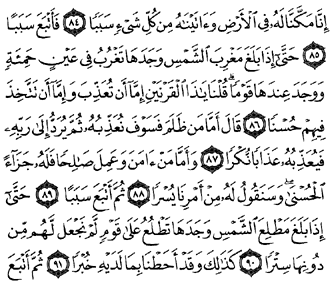 إِنَّا مَكَّنَّا لَهُۥ فِى ٱلْأَرْضِ وَءَاتَيْنَـٰهُ مِن كُلِّ شَىْءٍ سَبَبًا ٨٤ فَأَتْبَعَ سَبَبًا
٨٥ حَتَّىٰٓ إِذَا بَلَغَ مَغْرِبَ ٱلشَّمْسِ وَجَدَهَا تَغْرُبُ فِى عَيْنٍ حَمِئَةٍ
وَوَجَدَ عِندَهَا قَوْمًا قُلْنَا يَـٰذَا ٱلْقَرْنَيْنِ إِمَّآ أَن تُعَذِّبَ وَإِمَّآ أَن تَتَّخِذَ
فِيهِمْ حُسْنًا ٨٦ قَالَ أَمَّا مَن ظَلَمَ فَسَوْفَ نُعَذِّبُهُۥ ثُمَّ يُرَدُّ إِلَىٰ رَبِّهِۦ
فَيُعَذِّبُهُۥ عَذَابًا نُّكْرًا ٨٧ وَأَمَّا مَنْ ءَامَنَ وَعَمِلَ صَـٰلِحًا فَلَهُۥ جَزَآءً
ٱلْحُسْنَىٰ وَسَنَقُولُ لَهُۥ مِنْ أَمْرِنَا يُسْرًا ٨٨ ثُمَّ أَتْبَعَ سَبَبًا ٨٩ حَتَّىٰٓ
إِذَا بَلَغَ مَطْلِعَ ٱلشَّمْسِ وَجَدَهَا تَطْلُعُ عَلَىٰ قَوْمٍ لَّمْ نَجْعَل لَّهُم مِّن
دُونِهَا سِتْرًا ٩٠ كَذَٰلِكَ وَقَدْ أَحَطْنَا بِمَا لَدَيْهِ خُبْرًا ٩١ ثُمَّ أَتْبَعَ